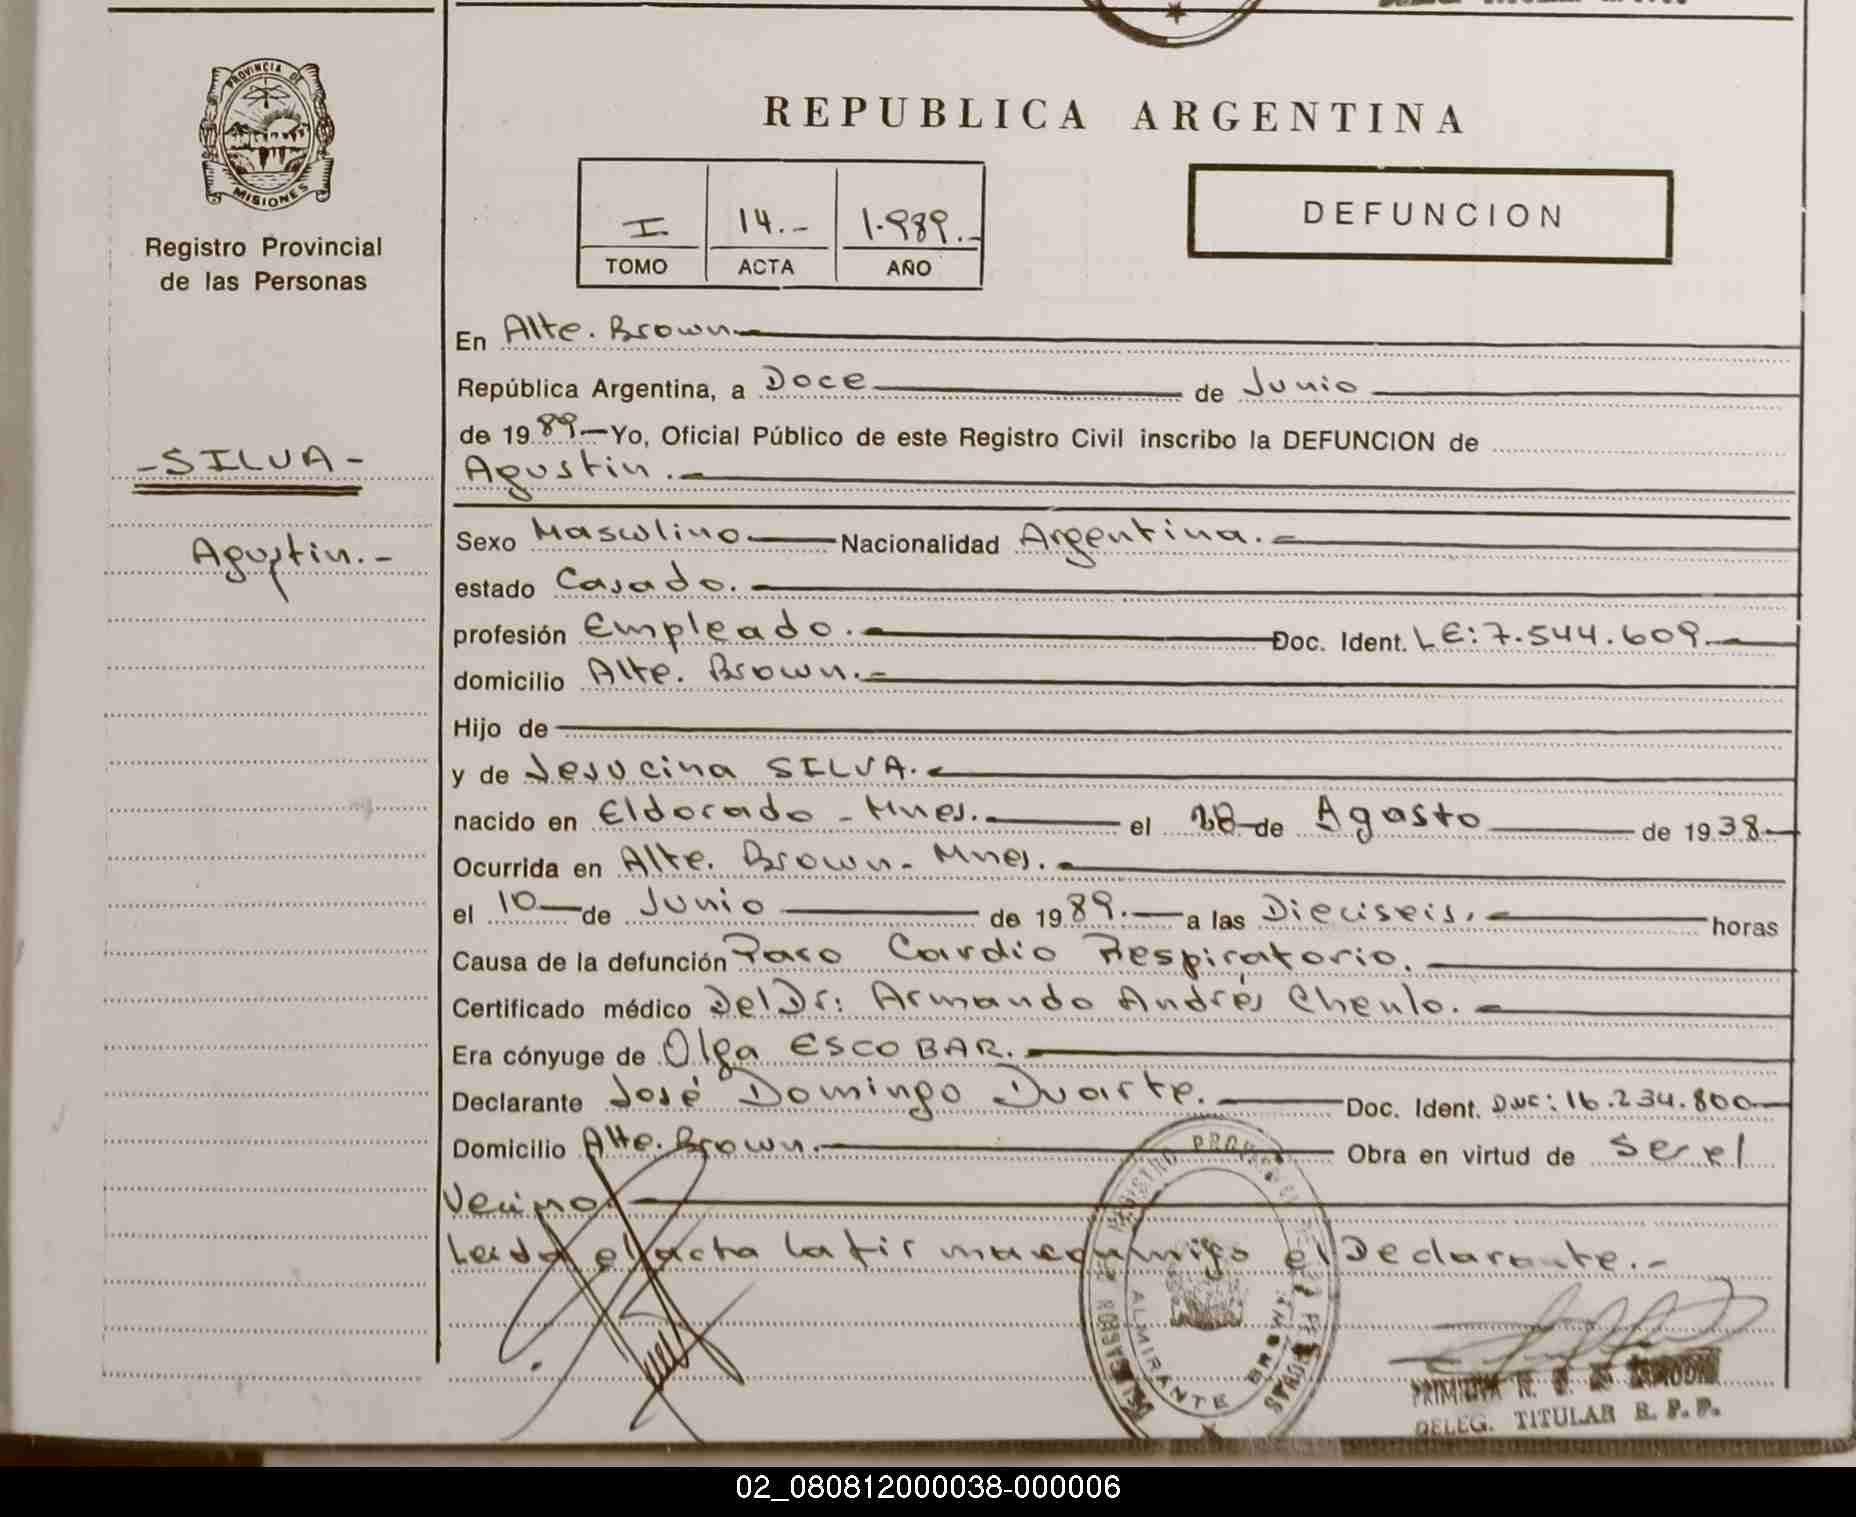 PROVINCIA DE
MISIONES
Registro Provincial
de las Personas
-SILVA-
Agustin.-
REPUBLICA ARGENTINA
I 14.- 1.989.-
TOMO ACTA AÑO
DEFUNCION
En Alte. Brown
República Argentina, a Doce de Junio
de 1989 Yo, Oficial Público de este Registro Civil inscribo la DEFUNCION de
Agustin.
Sexo Masculino Nacionalidad Argentina.
estado Casado.
profesión Empleado. Doc. Ident. LE: 7.544.609.
domicilio Alte. Brown.
Hijo de
y de Jesucina SILVA.
nacido en Eldorado - Mnes. el 28 de Agosto de 1938
Ocurrida en Alte. Brown - Mnes.
el 10 de Junio de 1989. a las Dieciseis. horas
Causa de la defunción Paro Cardio Respiratorio.
Certificado médico Del Dr: Armando Andrés Chenlo.
Era cónyuge de Olga ESCOBAR.
Declarante José Domingo Duarte. Doc. Ident. DNI: 16.234.800
Domicilio Alte. Brown. Obra en virtud de Ser el
Vecino.
Leida el acta la firma conmigo el Declarante.-
REGISTRO
ALMIRANTE BROWN
DELEG. TITULAR R. P. P.
02_080812000038-000006